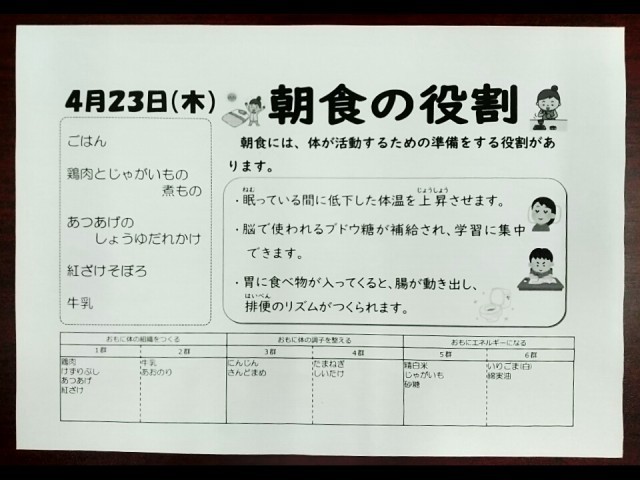 4月23日(木)
朝食の役割
ごはん
鶏肉とじゃがいもの
煮もの
あつあげの
しょうゆだれかけ
紅ざけそぼろ
牛乳
朝食には、体が活動するための準備をする役割があ
ります。
・眠っている間に低下した体温を上昇させます。
ねむ
じょうしょう
・脳で使われるブドウ糖が補給され、学習に集中
できます。
・胃に食べ物が入ってくると、腸が動き出し、
はいべん
排便のリズムがつくられます。
おもに体の組織をつくる
おもに体の調子を整える
おもにエネルギーになる
1群 2群 3群 4群 5群 6群
鶏肉 牛乳 にんじん たまねぎ 精白米 いりごま(白)
けずりぶし あおのり さんどまめ しいたけ じゃがいも 綿実油
あつあげ 砂糖
紅ざけ